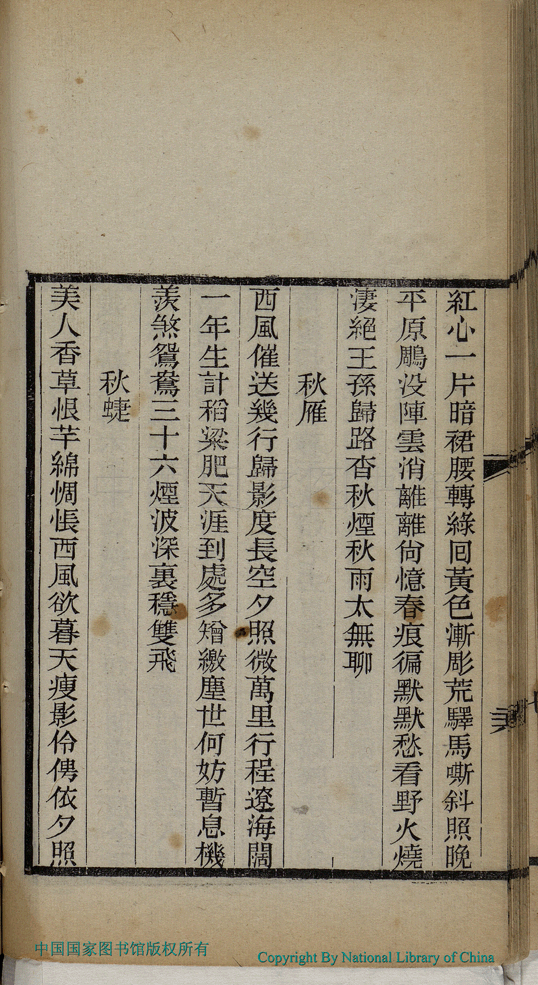 紅心一片暗裙腰轉綠回黃色漸彫荒驛馬嘶斜照晚
平原鵰没陣雲消離離尙憶春痕徧默默愁看野火燒
淒絕王孫歸路杳秋煙秋雨太無聊
秋雁
西風催送幾行歸影度長空夕照微萬里行程遼海闊
一年生計稻粱肥天涯到處多矰繳塵世何妨暫息機
羨煞鴛鴦三十六煙波深裏穩雙飛
秋蜨
美人香草恨芊綿惆悵西風欲暮天瘦影伶俜依夕照
中国国家图书馆版权所有
Copyright By National Library of China